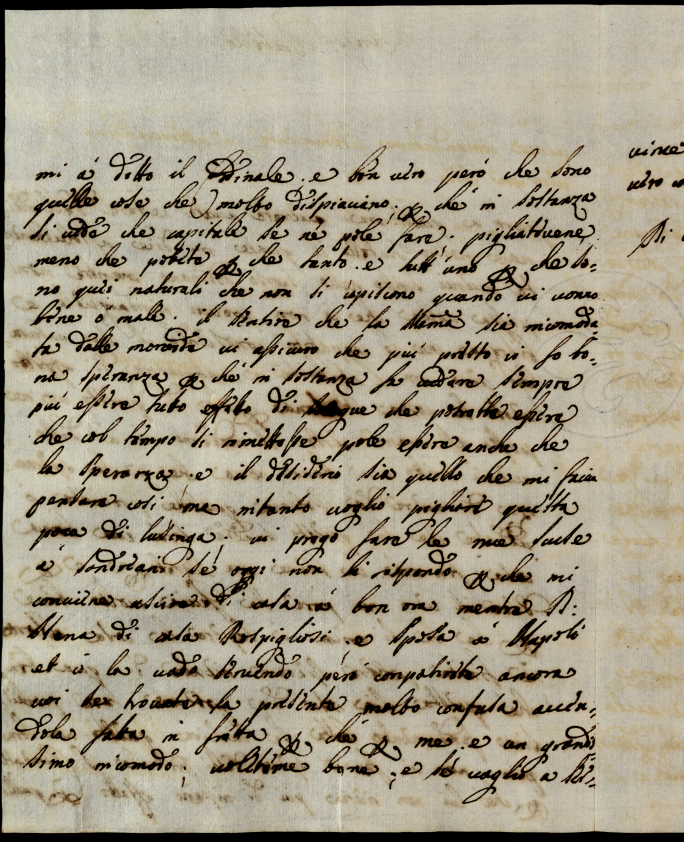 mi à detto il Cardinale. e ben vero però che sono
quelle cose che molto dispiaciano; che in sostanza
si vede che capitale se ne pole fare. pigliatevene
meno che potete che tanto e tutt'uno che so=
no quei naturali che non si capiscono quando vi vonno
bene o male. il sentire che la Mamà sia incomoda=
ta dalle morene vi assicuro che più presto vi fo bo=
na speranza che in sostanza fa vedere sempre
più essere tuto effetto di che potrebbe essere
che col tempo si rimettesse pole essere anche che
la speranza e il desiderio sia quello che mi facia
pensare così ma intanto voglio pigliare questa
poca di lusinga. vi prego fare le mie scuse
à se oggi non li rispondo che mi
conviene uscire di casa à bon ora mentre
di casa Rospigliosi e sposa à Napoli
et io la vado servendo però compatirete ancora
voi se trovate la presente molto confusa aven=
dola fatta in fretta che me e un grandis
simo incomodo; voletéme bene, e se vaglio a